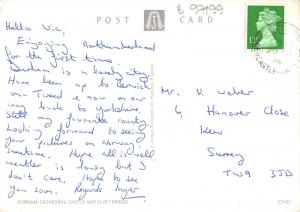 POST CARD
B 99199
Hello Vic,
Enjoying Northumberland
for the first time
Durham is a lovely city
Have been up to Berwick
on-Tweed & now on our
way back to Yorkshire,
still my favourite county.
Looking forward to seeing
your pictures on Norway
sometime. Hope all is well
weather is lousy but I
don't care. Hope to see
you soon. Regards
Mr. V Weber
6 Hanover Close
Kew
Surrey
TW9 3JD
DURHAM, CATHEDRAL, CASTLE AND ELVET BRIDGE